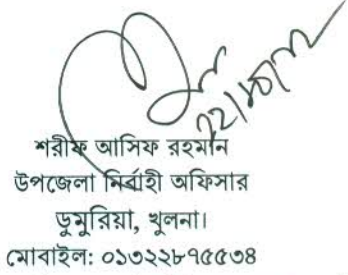 শরীফ আসিফ রহমান
উপজেলা নির্বাহী অফিসার
ডুমুরিয়া, খুলনা।
মোবাইল: ০১৩২২৮৭৫৫৩৪